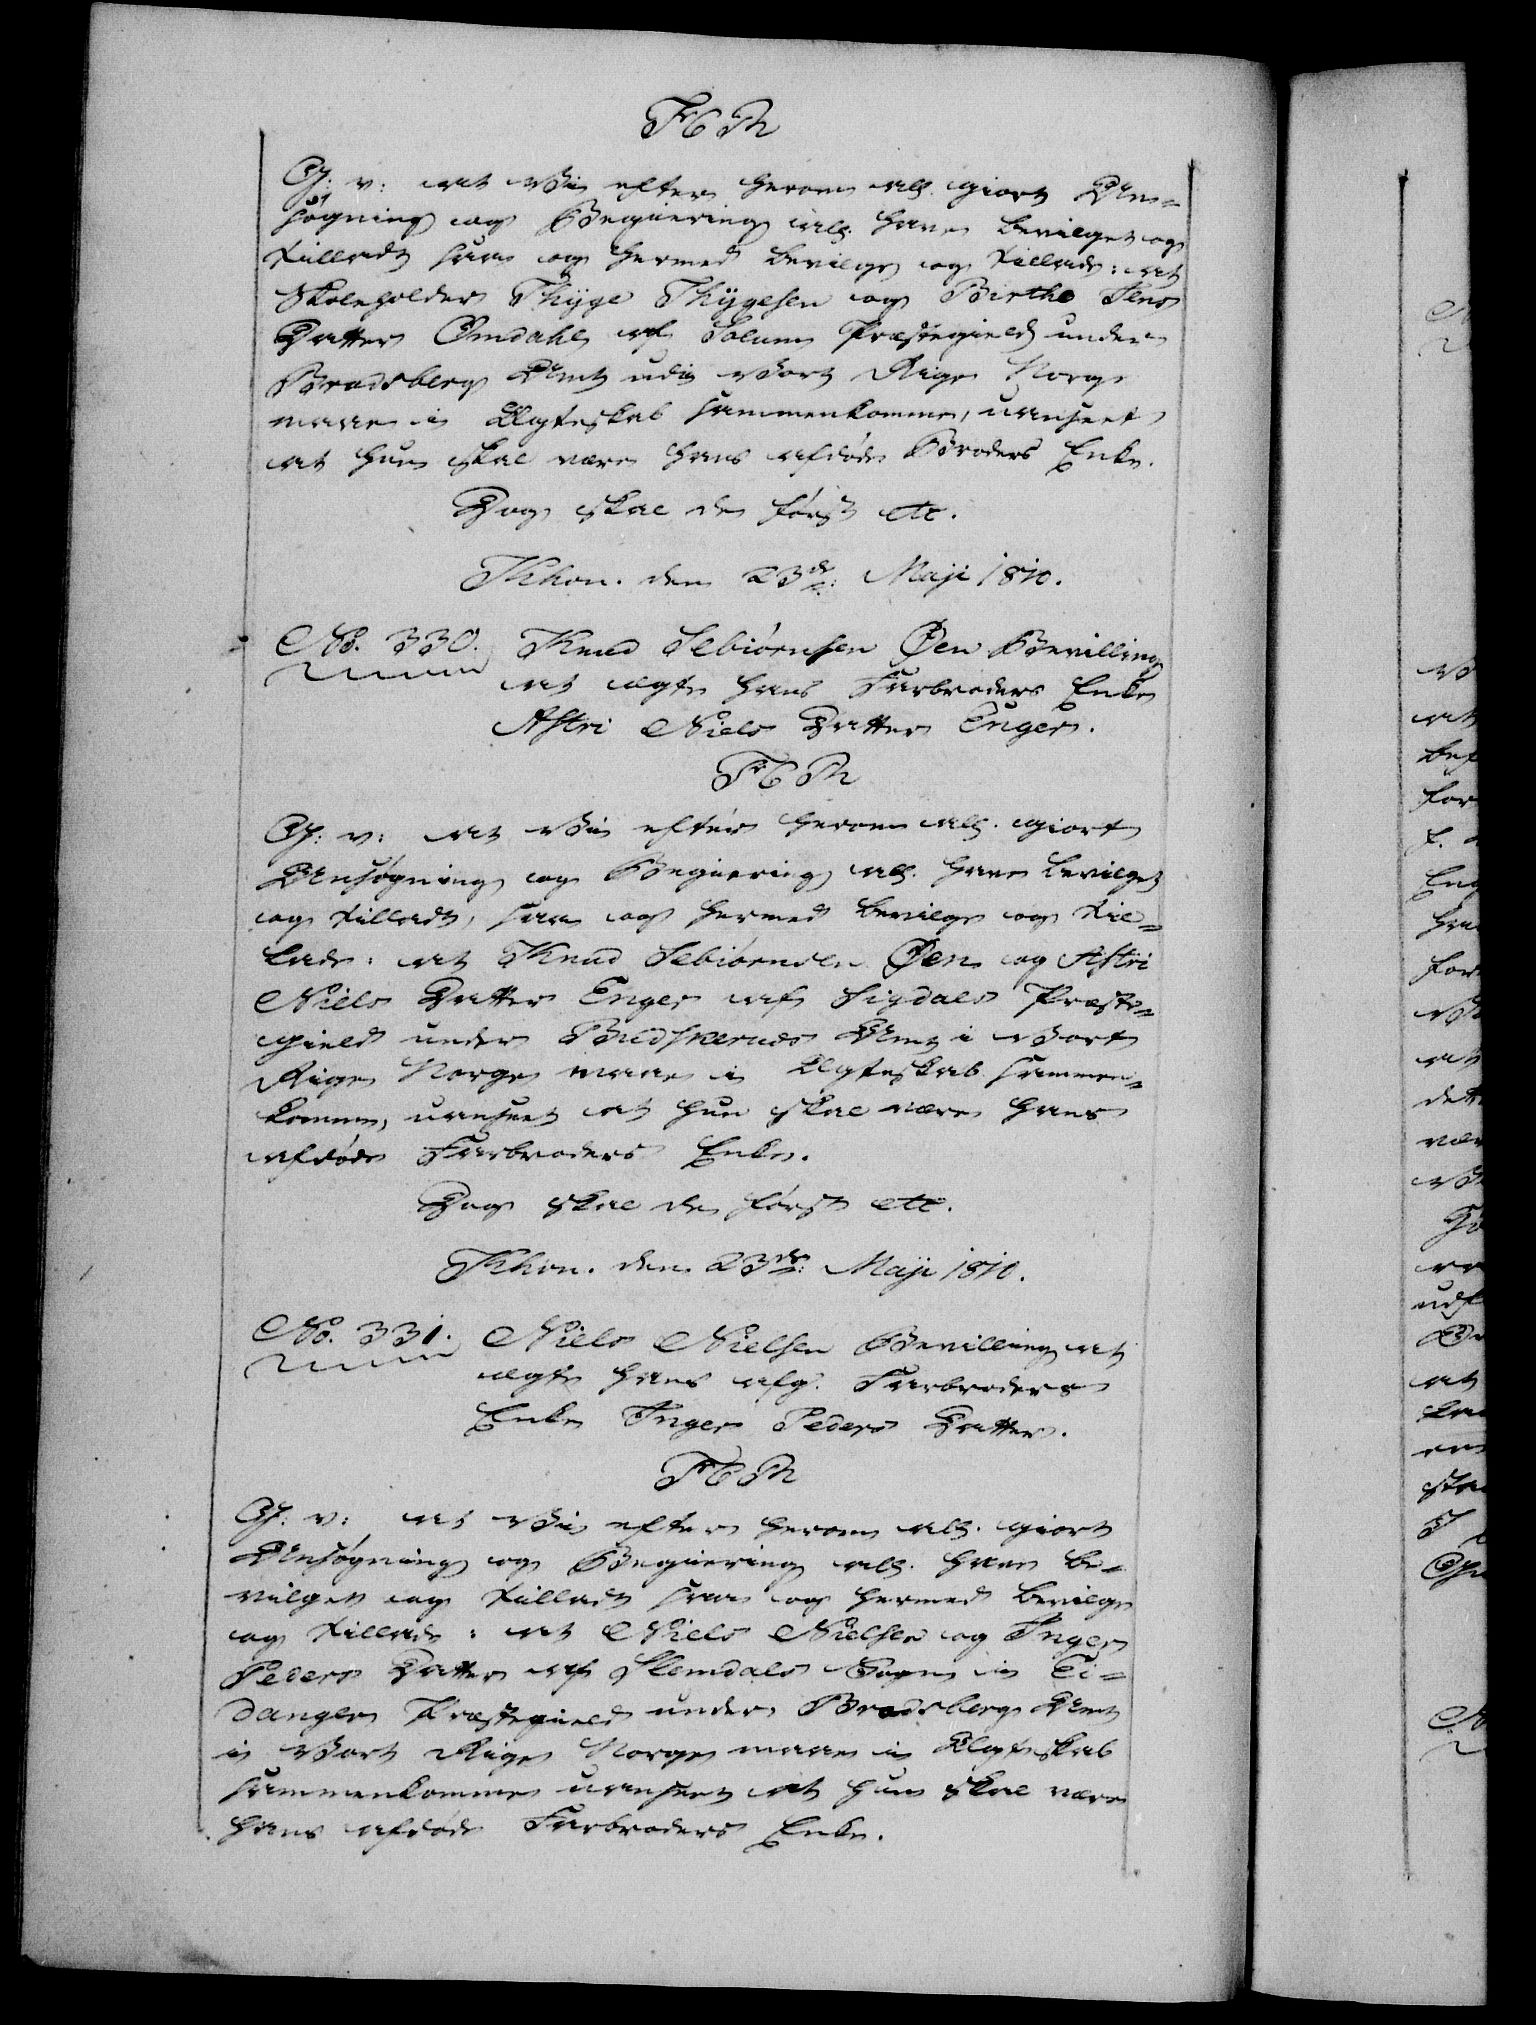 F6R
G: v: at Vi efter herom all. giort An-
søgning og Begiering all. have bevilget og
tilladt, saa og hermed bevilge og tillade: at
Skoleholder Thÿge Thÿgesen og Birthe Jens
Datter Omdahl af Solum Præstegield under
Bradsberg Amt udi Vort Rige Norge
maae i Ægteskab sammenkomme, uanseet
at hun skal være hans afdøde Broders Enke.
Dog skal de først etc.
Khvn. den 23de Maji 1810.
No. 330. Knud Sebiørnsen Øen Bevilling
at ægte hans Farbroders Enke
Astri Niels Datter Enger.
F6R
G: v: at Vi efter herom all. giort
Ansøgning og Begiering all. have bevilget
og tilladt, saa og hermed bevilge og til-
lade: at Knud Sebiørnsen Øen og Astri
Niels Datter Enger af Sigdals Præste-
gield under Budskeruds Amt i Vort
Rige Norge maae i Ægteskab sammen-
komme, uanseet at hun skal være hans
afdøde Farbroders Enke.
Dog skal de først etc.
Khvn. den 23de Maji 1810.
No. 331. Niels Nielsen Bevilling at
ægte hans afg. Farbroders
Enke Inger Peders Datter.
F6R
G: v: at Vi efter herom all. giort
Ansøgning og Begiering all. have be-
vilget og tilladt saa og hermed bevilge
og tillade: at Niels Nielsen og Inger
Peders Datter af Slemdals Sogn i Ei-
danger Præstegield under Bradsberg Amt
i Vort Rige Norge maae i Ægteskab
sammenkomme uanseet at hun skal være
hans afdøde Farbroders Enke.